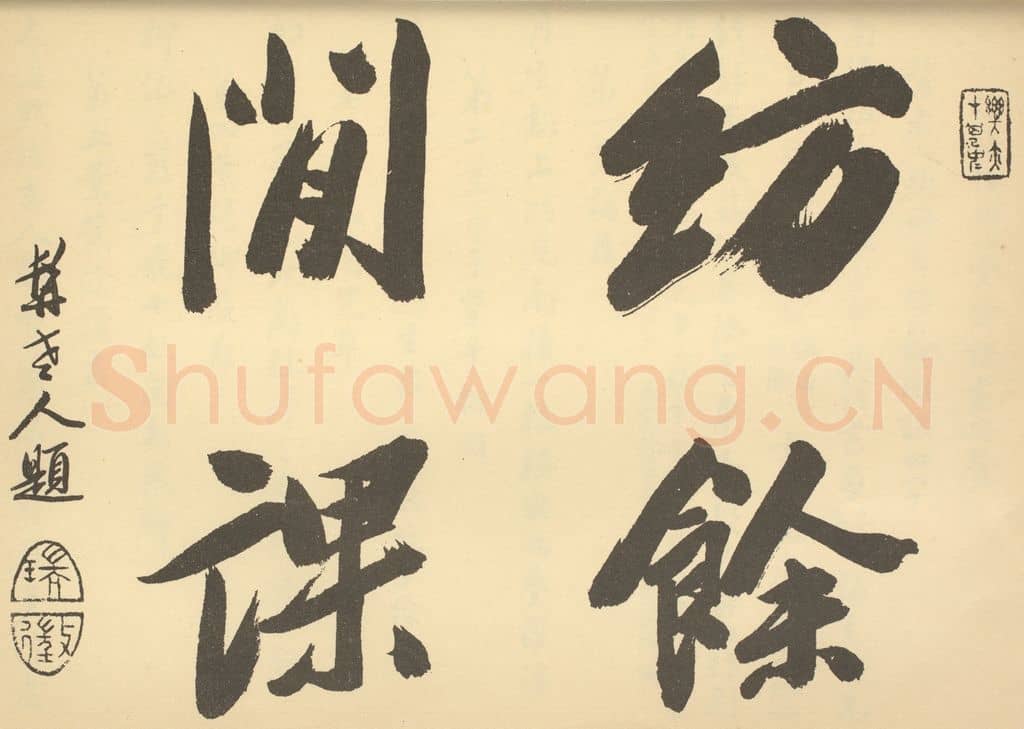 紡餘
閒課
老人題
Shufawang.CN